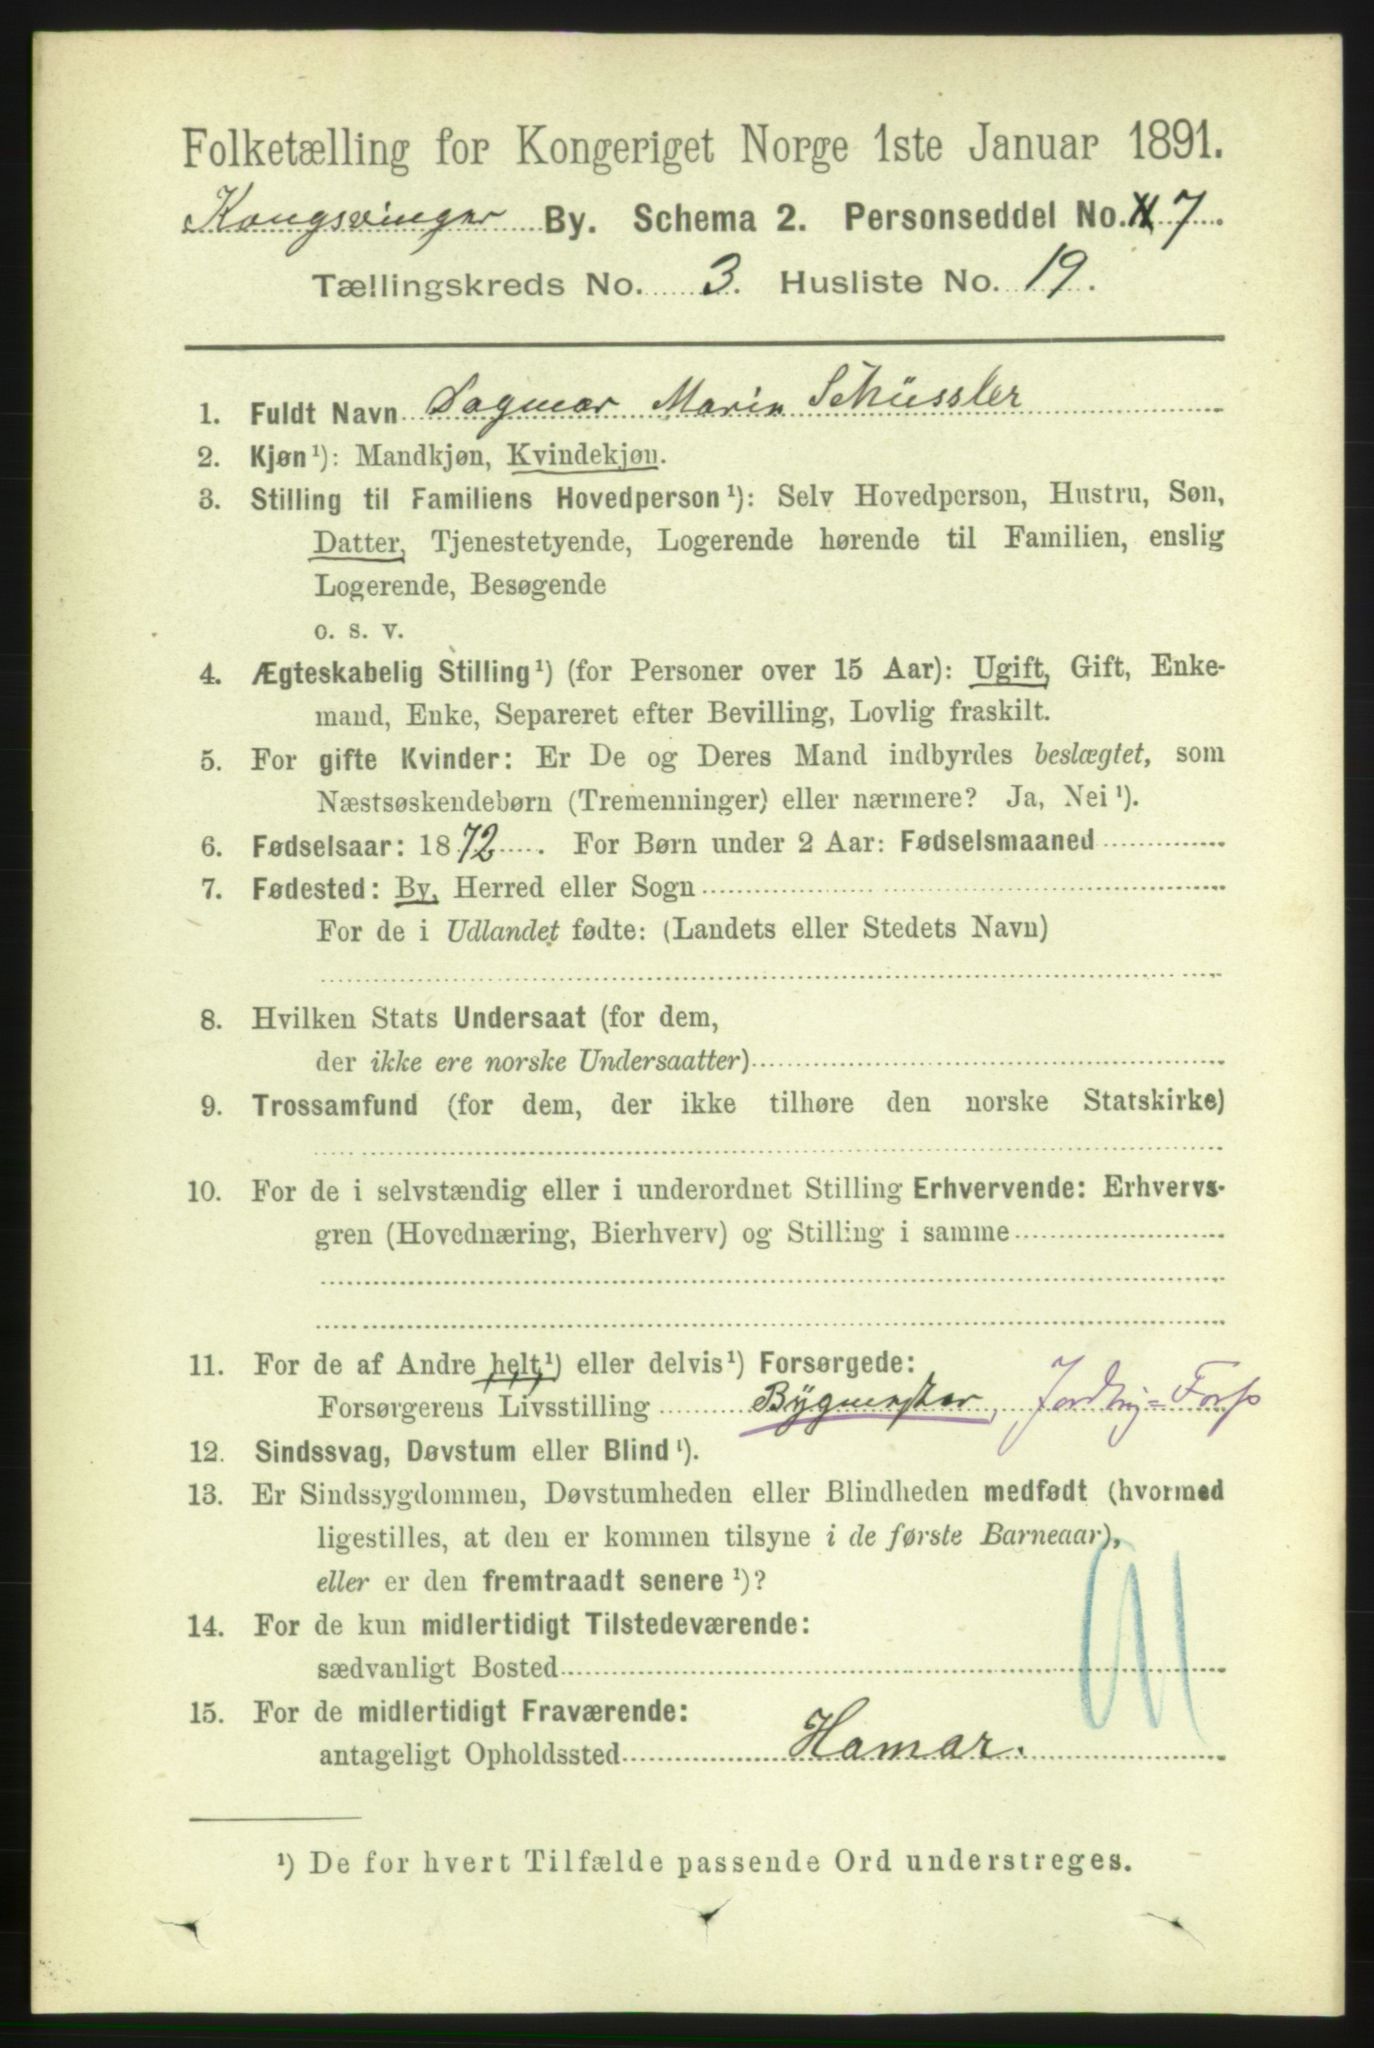 Folketælling for Kongeriget Norge 1ste Januar 1891.
Kongsvinger By. Schema 2. Personseddel No. 7.
Tællingskreds No. 3. Husliste No. 19.
1. Fuldt Navn Dagmar Marie Schüssler
2. Kjøn¹): Mandkjøn, Kvindekjøn.
3. Stilling til Familiens Hovedperson¹): Selv Hovedperson, Hustru, Søn,
Datter, Tjenestetyende, Logerende hørende til Familien, enslig
Logerende, Besøgende
o. s. v.
4. Ægteskabelig Stilling¹) (for Personer over 15 Aar): Ugift, Gift, Enke-
mand, Enke, Separeret efter Bevilling, Lovlig fraskilt.
5. For gifte Kvinder: Er De og Deres Mand indbyrdes beslægtet, som
Næstsøskendebørn (Tremenninger) eller nærmere? Ja, Nei¹).
6. Fødselsaar: 1872. For Børn under 2 Aar: Fødselsmaaned
7. Fødested: By, Herred eller Sogn
For de i Udlandet fødte: (Landets eller Stedets Navn)
8. Hvilken Stats Undersaat (for dem,
der ikke ere norske Undersaatter)
9. Trossamfund (for dem, der ikke tilhøre den norske Statskirke)
10. For de i selvstændig eller i underordnet Stilling Erhvervende: Erhvervs-
gren (Hovednæring, Bierhverv) og Stilling i samme
11. For de af Andre helt¹) eller delvis¹) Forsørgede:
Forsørgerens Livsstilling Bygmester,
12. Sindssvag, Døvstum eller Blind¹).
13. Er Sindssygdommen, Døvstumheden eller Blindheden medfødt (hvormed
ligestilles, at den er kommen tilsyne i de første Barneaar),
eller er den fremtraadt senere¹)?
14. For de kun midlertidigt Tilstedeværende:
sædvanligt Bosted
15. For de midlertidigt Fraværende:
antageligt Opholdssted Hamar.
¹) De for hvert Tilfælde passende Ord understreges.